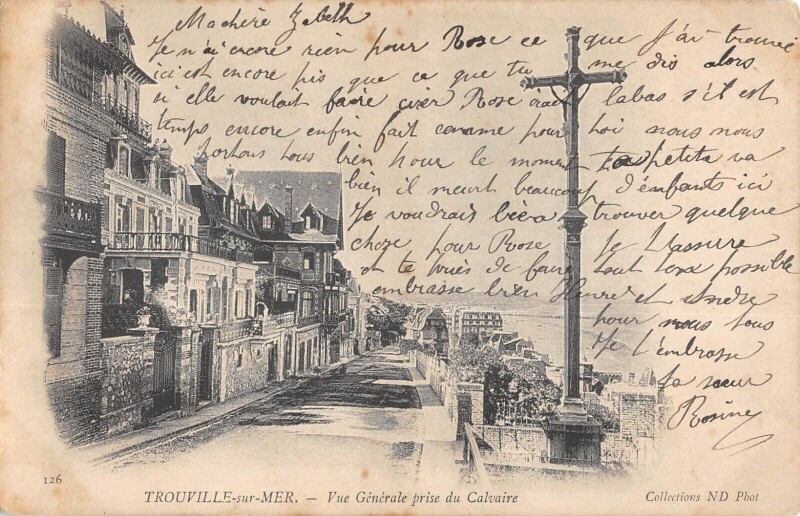 Machère Zabeth
Je n'ai encore rien pour Rose ce que J'ai trouvé
ici c'est encore pis que ce que tu me dis alors
si elle voulait faire Rose labas s'il est
temps encore enfin fait comme pour toi nous nous
portons tous bien pour le moment ta petite va
bien il meurt beaucoup d'enfants ici
Je voudrais bien trouver quelque
chose pour Rose Je t'assure
et te prie de faire tout ton possible
embrasse bien Henri et André
pour nous tous
Je t'embrasse
ta sœur
Rosine
126
TROUVILLE-sur-MER. – Vue Générale prise du Calvaire
Collections ND Phot